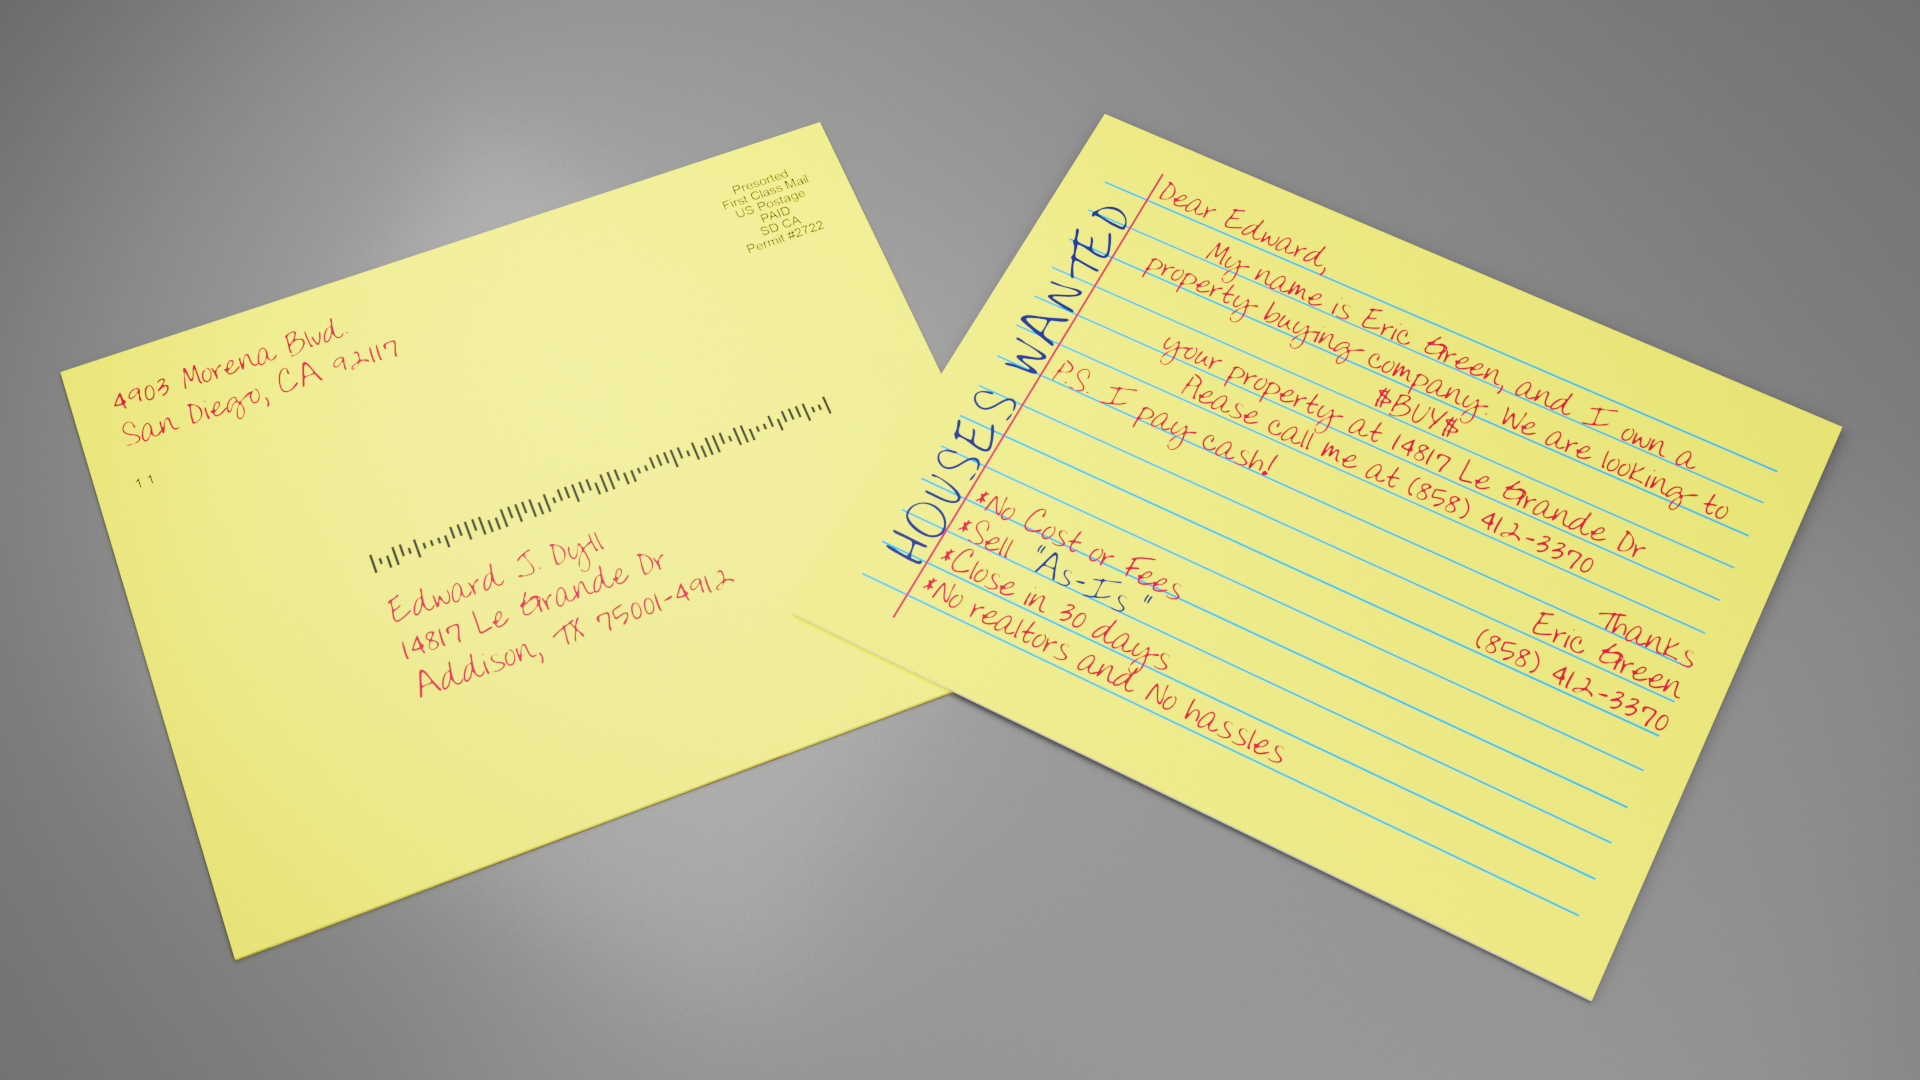 Presorted
First Class Mail
US Postage
PAID
SD CA
Permit #2722
4903 Morena Blvd.
San Diego, CA 92117
11
Edward J. Dyll
14817 Le Grande Dr
Addison, TX 75001-4912
HOUSES WANTED
Dear Edward,
My name is Eric Green, and I own a
property buying company. We are looking to
$BUY$
your property at 14817 Le Grande Dr
Please call me at (858) 412-3370
P.S. I pay cash!
Thanks
Eric Green
(858) 412-3370
*No Cost or Fees
*Sell "As-Is"
*Close in 30 days
*No realtors and No hassles